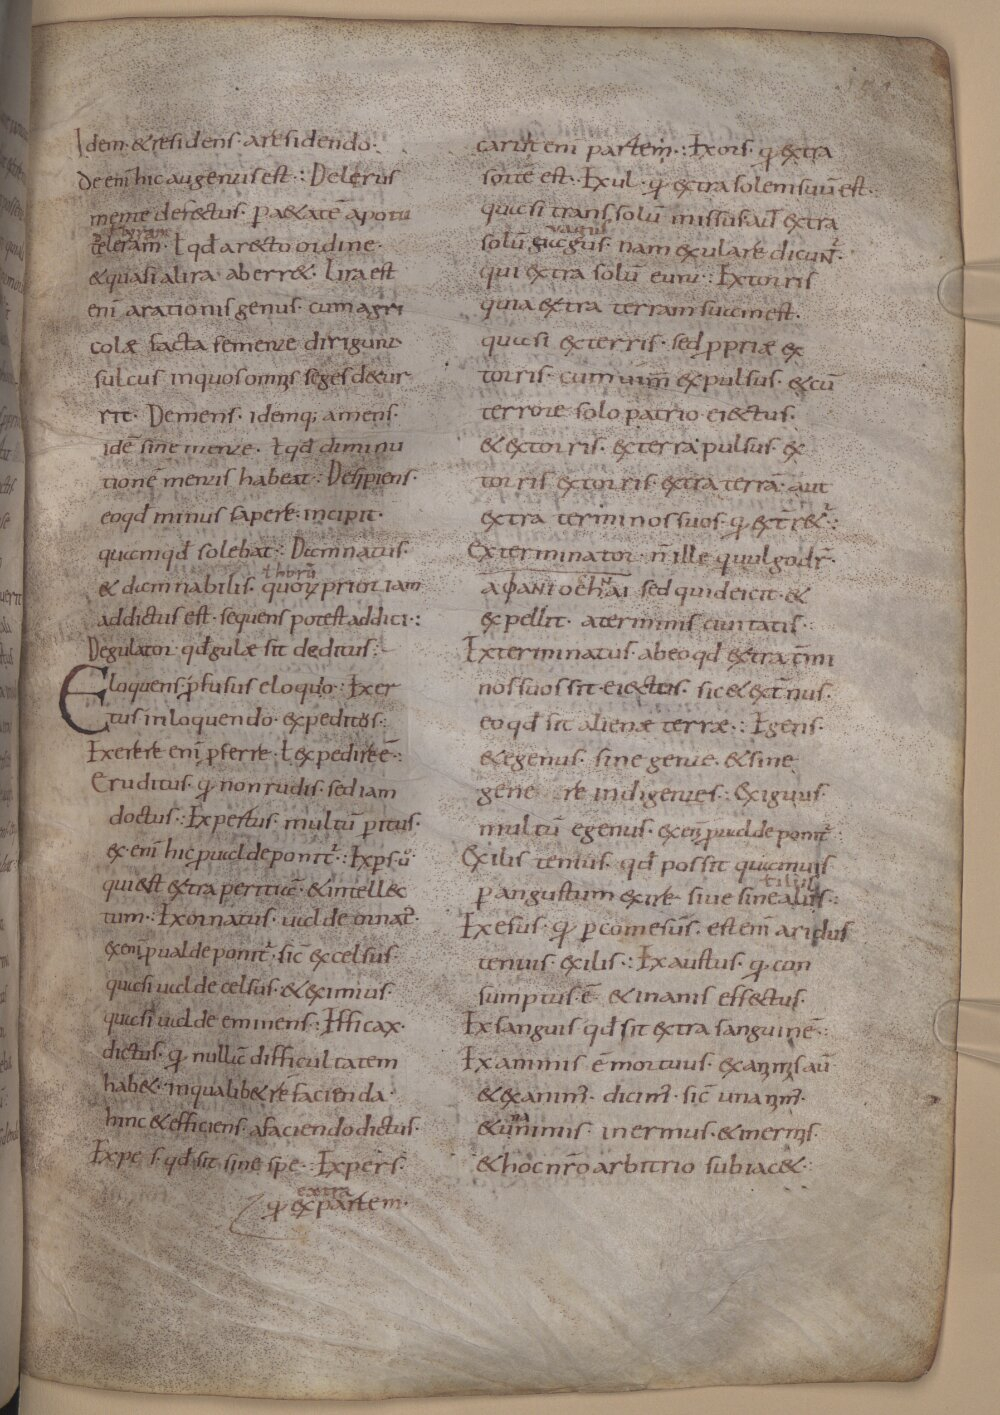 Idem & residens · a residendo ·
De enī hic augentis est · : Delerus
mente defectus · p a&atē apo tu
leram
teleram · ł qđ a recto ordine ·
& quasi a lira aberr& · lira est
enī arationis genus · cum agri
colæ facta semente dirigunt
sulcus in quos omīs seges decur
rit · Demens · idemq; amens ·
idē sine mente · ł qđ diminu
tionē mentis habeat · : Desipiens ·
eo qđ minus sapere incipit ·
quam qđ solebat · : Damnatus ·
& damnabilis · quoꝝ prior iam
addictus est · sequens potest addici · :
Degulator · qđ gulæ sit deditus · :
Eloquens pfusus eloquio · : Exer
tus in loquendo · expeditus · :
Exerere enī pferre · ł expedire ē · :
Eruditus · q̇ non rudis · sed iam
doctus · : Expertus · multū pitus ·
ex · enī hic p uald e ponit̄ · : Expſ
qui est extra peritiā · & intellec
tum · Exornatus · ualde ornat̄ ·
ex enī p ualde ponit̄ · sic̄ excelsus ·
quasi ualde celsus · & eximius ·
quasi ualde eminens · : Efficax ·
dictus · q̇ nullā difficultatem
hab& · in qualib& re facienda ·
hinc & efficiens a faciendo dictus ·
Expes · qđ sit sine spe · : Expers ·
extra
q̇ ex partem ·
caret enī partem · : Exors · q̇ extra
sortē est · Exul · q̇ extra solem suū est ·
quasi trans solū missus aut extra
uagus
solū · nam exulare dicunt̄ ·
qui extra solū eunt · : Extorris
quia extra terram suam est ·
quasi exterris · sed pprie ex
torris · cum uim expulsus · & cū
terrore solo patrio eiectus ·
& extorris · ex terra pulsus ex
torris extorris extra terrā aut
extra terminos suos · q̇ ext̄re& · :
Exterminator · n̄ ille q uulgo dr̄ ·
sed qui deicit · &
expellit · a terminis ciuitatis · :
Exterminatus · ab eo qđ extra t̄mi
nos suos sit · eiectus · sic & ext̄nus ·
eo qđ sit alienæ terræ · : Egens ·
& egenus · sine gente · & sine
gene re indigentes · : Exiguus ·
multū egenus · ex enī p ualde ponit̄
Exilis tenuis · qđ possit quamuis
p angustum exire siue sine
Exesus · q̇ p comesus · est enī aridus
tenuis · exilis · : Exaustus · q̇ con
sumptus · ē & inanis effectus ·
Exsanguis qđ sit extra sanguinē · :
Exanimis ē mortuus · exanīs aū
& exanim̄ · dicim̄ · sic̄ unanim̄ ·
& unanimis inermus · & inermis ·
& hoc nr̄o arbitrio subiac& ·